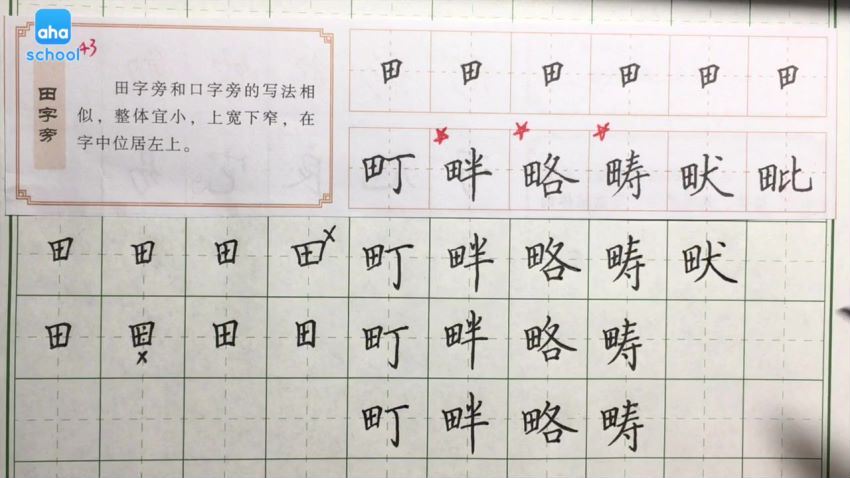 aha
school
43
田字旁
田字旁和口字旁的写法相
似，整体宜小，上宽下窄，在
字中位居左上。
田 田 田 田 田 田
町 畔 略 畴 畎 毗
田 田 田 田 × 町 畔 略 畴 畎
田 田 田 田 町 畔 略 畴
×
町 畔 略 畴